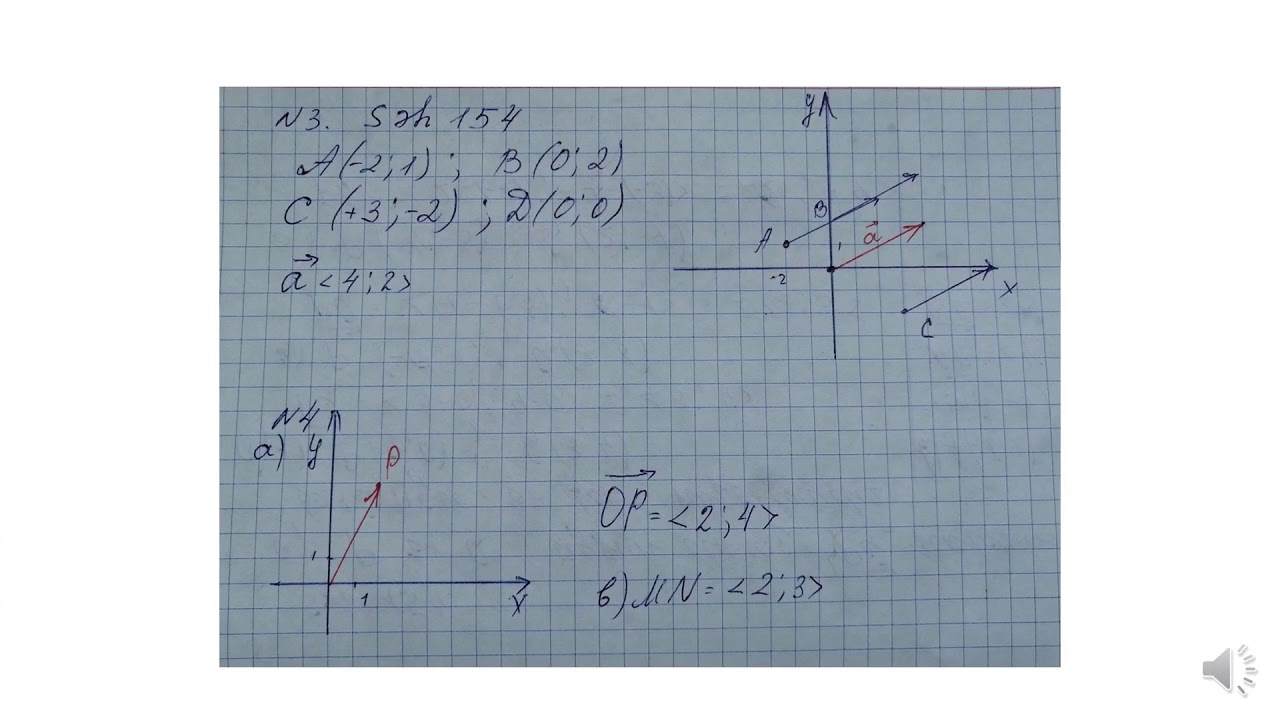 N3. Səh 154
A(-2;1) ; B(0;2)
C (+3;-2) ; D(0;0)
a <4;2>
y
B
A
a
1
-2
x
C
N4
a) y
P
1
1
x
OP = <2;4>
b) MN = <2;3>